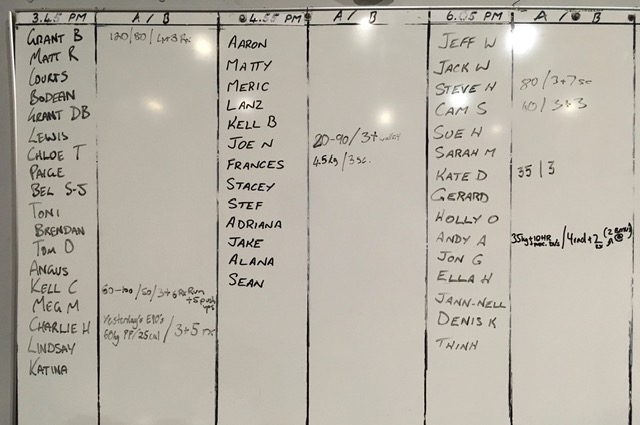 3.45 PM
A / B
GRANT B
120/80/
MATT R
COURTS
BODEAN
GRANT DB
LEWIS
CHLOE T
PAIGE
BEL S-J
TONI
BRENDAN
TOM O
ANGUS
KELL C
MEG M
CHARLIE H
Yesterday's
60kg PP/25cal / 3+5
LINDSAY
KATINA
4.55 PM
A / B
AARON
MATTY
MERIC
LANZ
KELL B
JOE N
20-90/3+
FRANCES
45kg/3sc.
STACEY
STEF
ADRIANA
JAKE
ALANA
SEAN
6.05 PM
A / B
JEFF W
JACK W
STEVE H
80/3+7sc
CAM S
60/3+3
SUE H
SARAH M
KATE D
35|3
GERARD
HOLLY O
ANDY A
35kg+10HR / 4rnd+2
JON G
ELLA H
JANN-NELL
DENIS K
THINH